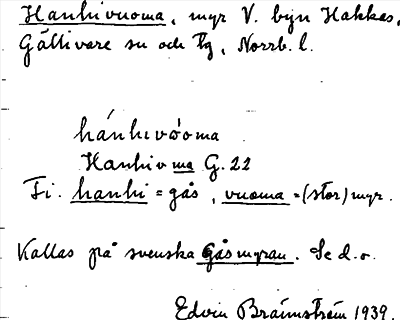 Hanhivuoma, myr V. byn Hakkas,
Gällivare sn och tg, Norrb. l.
hánhivòoma
Hanhivma G. 22
Fi. hanhi = gås, vuoma = (stor) myr.
Kallas på svenska Gåsmyran. Se d. o.
Edvin Brännström 1939.